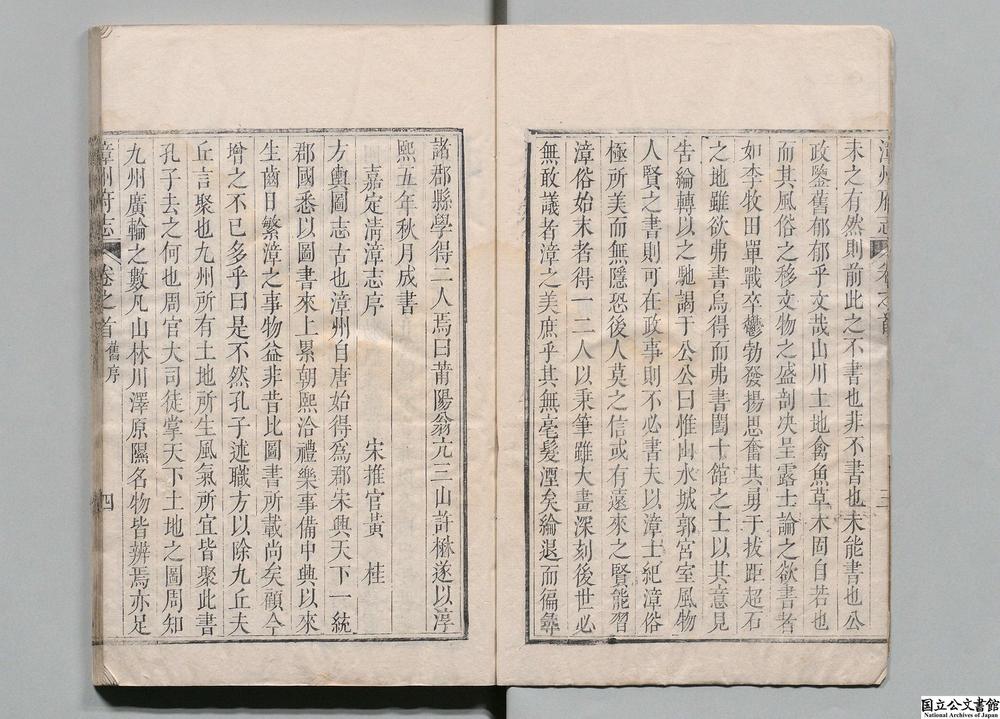 未之有然則前此之不書也非不書也未能書也公
政鑒舊郁郁乎文哉山川土地禽魚草木固自若也
而其風俗之移文物之盛剖决呈露士論之欲書者
如李牧田單戰卒鬱勃發揚思奮其勇于拔距超石
之地雖欲弗書烏得而弗書閩十館之士以其意見
告綸轉以之馳謁于公公曰惟山水城郭宮室風物
人賢之書則可在政事則不必書夫以漳士紀漳俗
極所美而無隱恐後人莫之信或有遠來之賢能習
漳俗始末者得一二人以秉筆雖大畫深刻後世必
無敢議者漳之美庶乎其無毫髮湮矣綸退而徧彝
漳州府志
卷之首
三
諸郡縣學得二人焉曰莆陽翁亢三山許楙遂以淳
熙五年秋月成書
嘉定淸漳志序
宋推官黃桂
方輿圖志古也漳州自唐始得爲郡宋興天下一統
郡國悉以圖書來上累朝熙洽禮樂事備中興以來
生齒日繁漳之事物益非昔比圖書所載尚矣顧今
增之不已多乎曰是不然孔子述職方以除九丘夫
丘言聚也九州所有土地所生風氣所宜皆聚此書
孔子去之何也周官大司徒掌天下土地之圖周知
九州廣輪之數凡山林川澤原隰名物皆辨焉亦足
漳州府志
卷之首
舊序
四
国立公文書館
National Archives of Japan